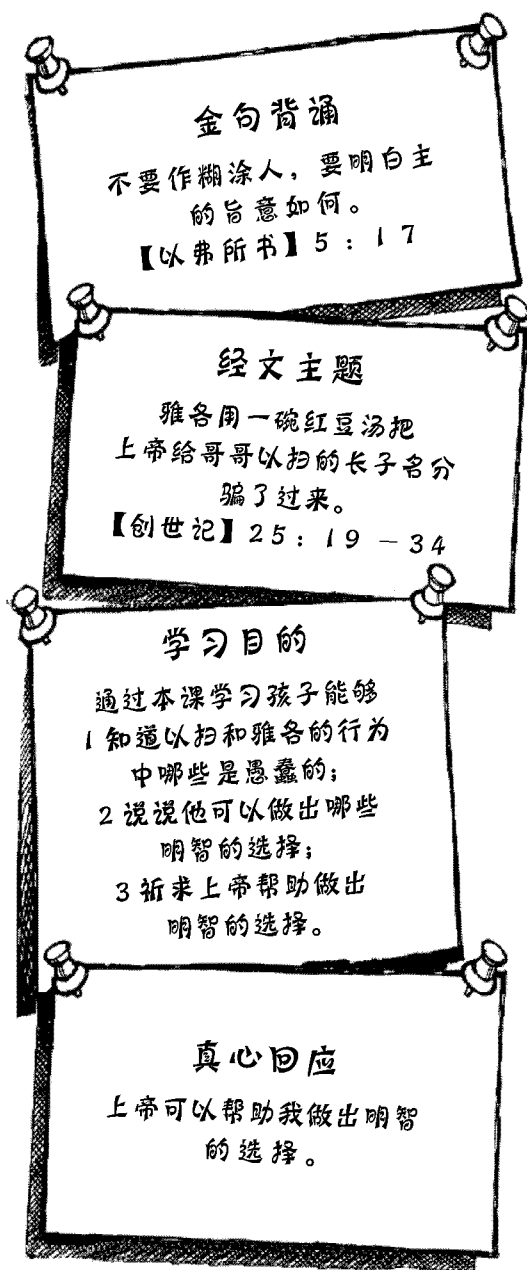 金句背诵
不要作糊涂人，要明白主
的旨意如何。
【以弗所书】5：17
经文主题
雅各用一碗红豆汤把
上帝给哥哥以扫的长子名分
骗了过来。
【创世记】25：19－34
学习目的
通过本课学习孩子能够
1知道以扫和雅各的行为
中哪些是愚蠢的；
2说说他可以做出哪些
明智的选择；
3祈求上帝帮助做出
明智的选择。
真心回应
上帝可以帮助我做出明智
的选择。